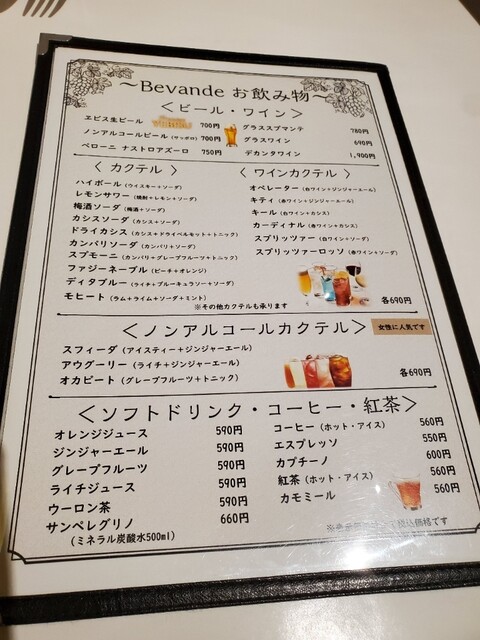 ～Bevande お飲み物～
＜ビール・ワイン＞
ヱビス生ビール 700円
ノンアルコールビール (サッポロ) 700円
ペローニ ナストロアズーロ 750円
グラススプマンテ 780円
グラスワイン 690円
デカンタワイン 1,900円
＜ カクテル ＞
ハイボール (ウイスキー＋ソーダ)
レモンサワー (焼酎＋レモン＋ソーダ)
梅酒ソーダ (梅酒＋ソーダ)
カシスソーダ (カシス＋ソーダ)
ドライカシス (カシス＋ドライベルモット＋トニック)
カンパリソーダ (カンパリ＋ソーダ)
スプモーニ (カンパリ＋グレープフルーツ＋トニック)
ファジーネーブル (ピーチ＋オレンジ)
ディタブルー (ライチ＋ブルーキュラソー＋ソーダ)
モヒート (ラム＋ライム＋ソーダ＋ミント)
※その他カクテルも承ります
＜ ワインカクテル ＞
オペレーター (白ワイン＋ジンジャーエール)
キティ (赤ワイン＋ジンジャーエール)
キール (白ワイン＋カシス)
カーディナル (赤ワイン＋カシス)
スプリッツァー (白ワイン＋ソーダ)
スプリッツァーロッソ (赤ワイン＋ソーダ)
各690円
＜ノンアルコールカクテル＞ 女性に人気です
スフィーダ (アイスティー＋ジンジャーエール)
アウグーリー (ライチ＋ジンジャーエール)
オカピート (グレープフルーツ＋トニック)
各690円
＜ソフトドリンク・コーヒー・紅茶＞
オレンジジュース 590円
ジンジャーエール 590円
グレープフルーツ 590円
ライチジュース 590円
ウーロン茶 590円
サンペレグリノ 660円
(ミネラル炭酸水500ml)
コーヒー (ホット・アイス) 560円
エスプレッソ 550円
カプチーノ 600円
紅茶 (ホット・アイス) 560円
カモミール 560円
税込価格です